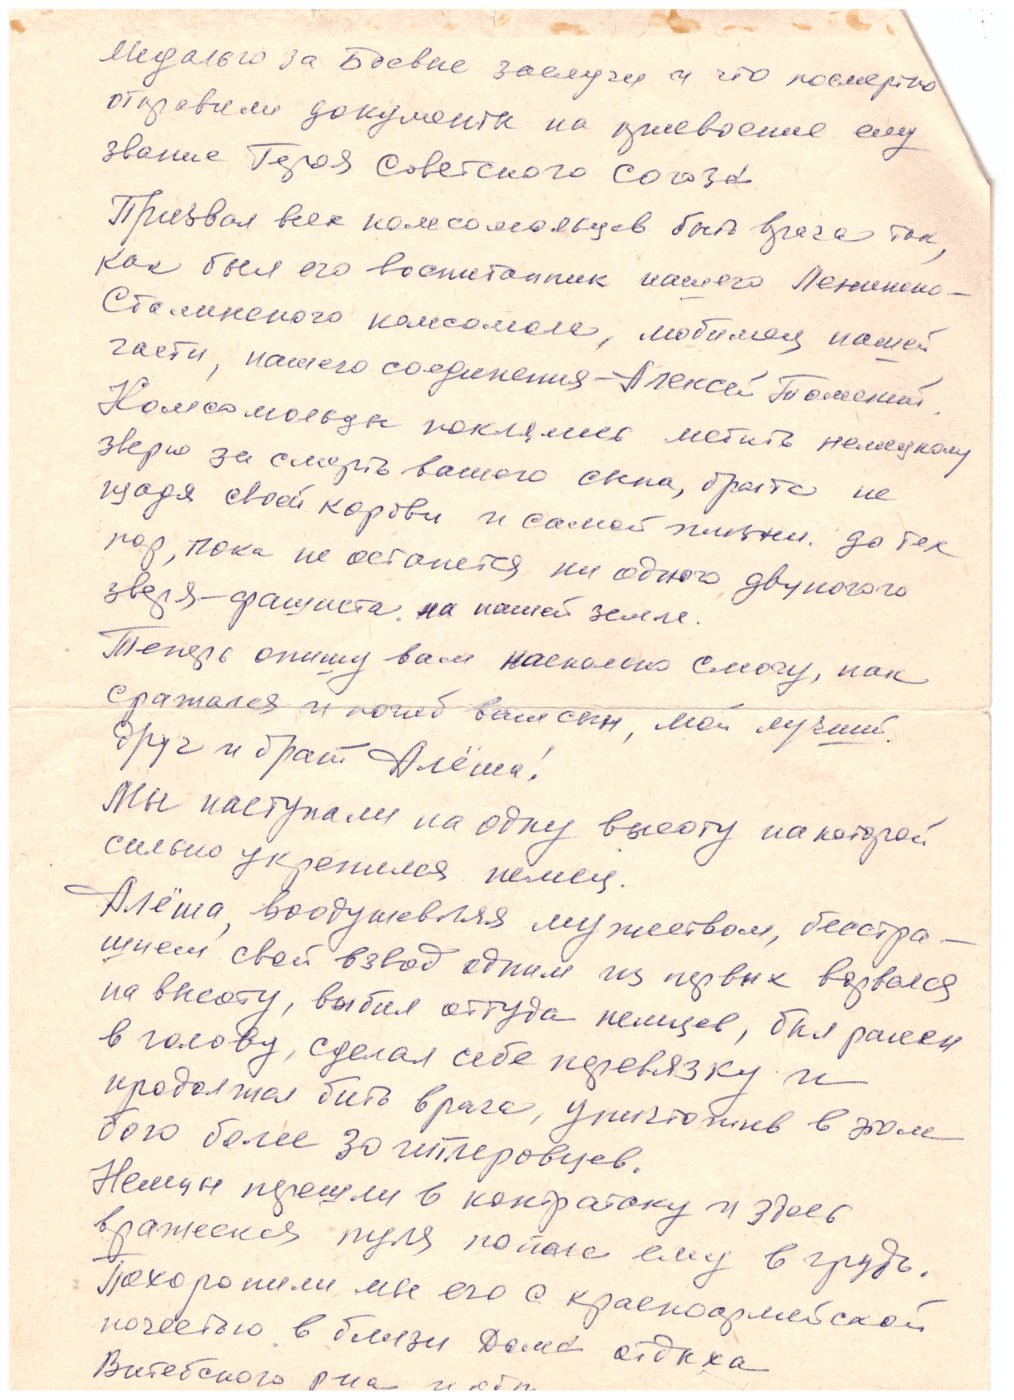 Медалью за Боевые заслуги и что посмертно
отправили документы на присвоение ему
звание Героя Советского Союза
Призвал всех комсомольцев бить врага так,
как был его воспитанник нашего Ленинско-
Сталинского комсомола, любимец нашей
части, нашего соединения - Алексей
Комсомольцы поклялись мстить немецкому
зверю за смерть вашего сына, брата не
щадя своей крови и самой жизни. до тех
пор, пока не останется ни одного двуногого
зверя-фашиста. на нашей земле.
Теперь опишу вам насколько смогу, как
сражался и погиб ваш сын, мой лучший
друг и брат Алёша!
Мы наступали на одну высоту на которой
сильно укрепился немец.
Алёша, воодушевляя мужеством, бесстра-
шием свой взвод одним из первых ворвался
на высоту, выбил оттуда немцев, был ранен
в голову, сделал себе перевязку и
продолжал бить врага, уничтожив в этом
бою более 30 гитлеровцев.
Немцы перешли в контратаку и здесь
вражеская пуля попала ему в грудь.
Похоронили мы его с красноармейской
почестью в близи Дома отдыха
Витебского р-на